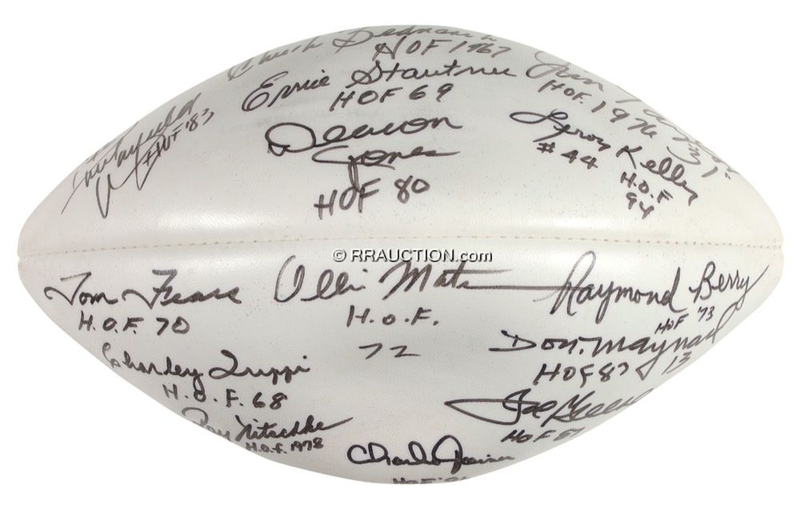 Chuck Bednarik
HOF 1967
Ernie Stautner
HOF 69
Jim
HOF. 1976
HOF '83
Deacon
Jones
HOF 80
Leroy Kelly
#44 H.O.F
94
© RRAUCTION.com
Tom Fears
H.O.F. 70
Ollie Matson
H.O.F.
72
Raymond Berry
HOF '73
Charley Trippi
H.O.F. 68
Don Maynard
13
HOF 87
Ray Nitschke
H.O.F. 1978
Joe Greene
HOF 87
Charlie Joiner
HOF